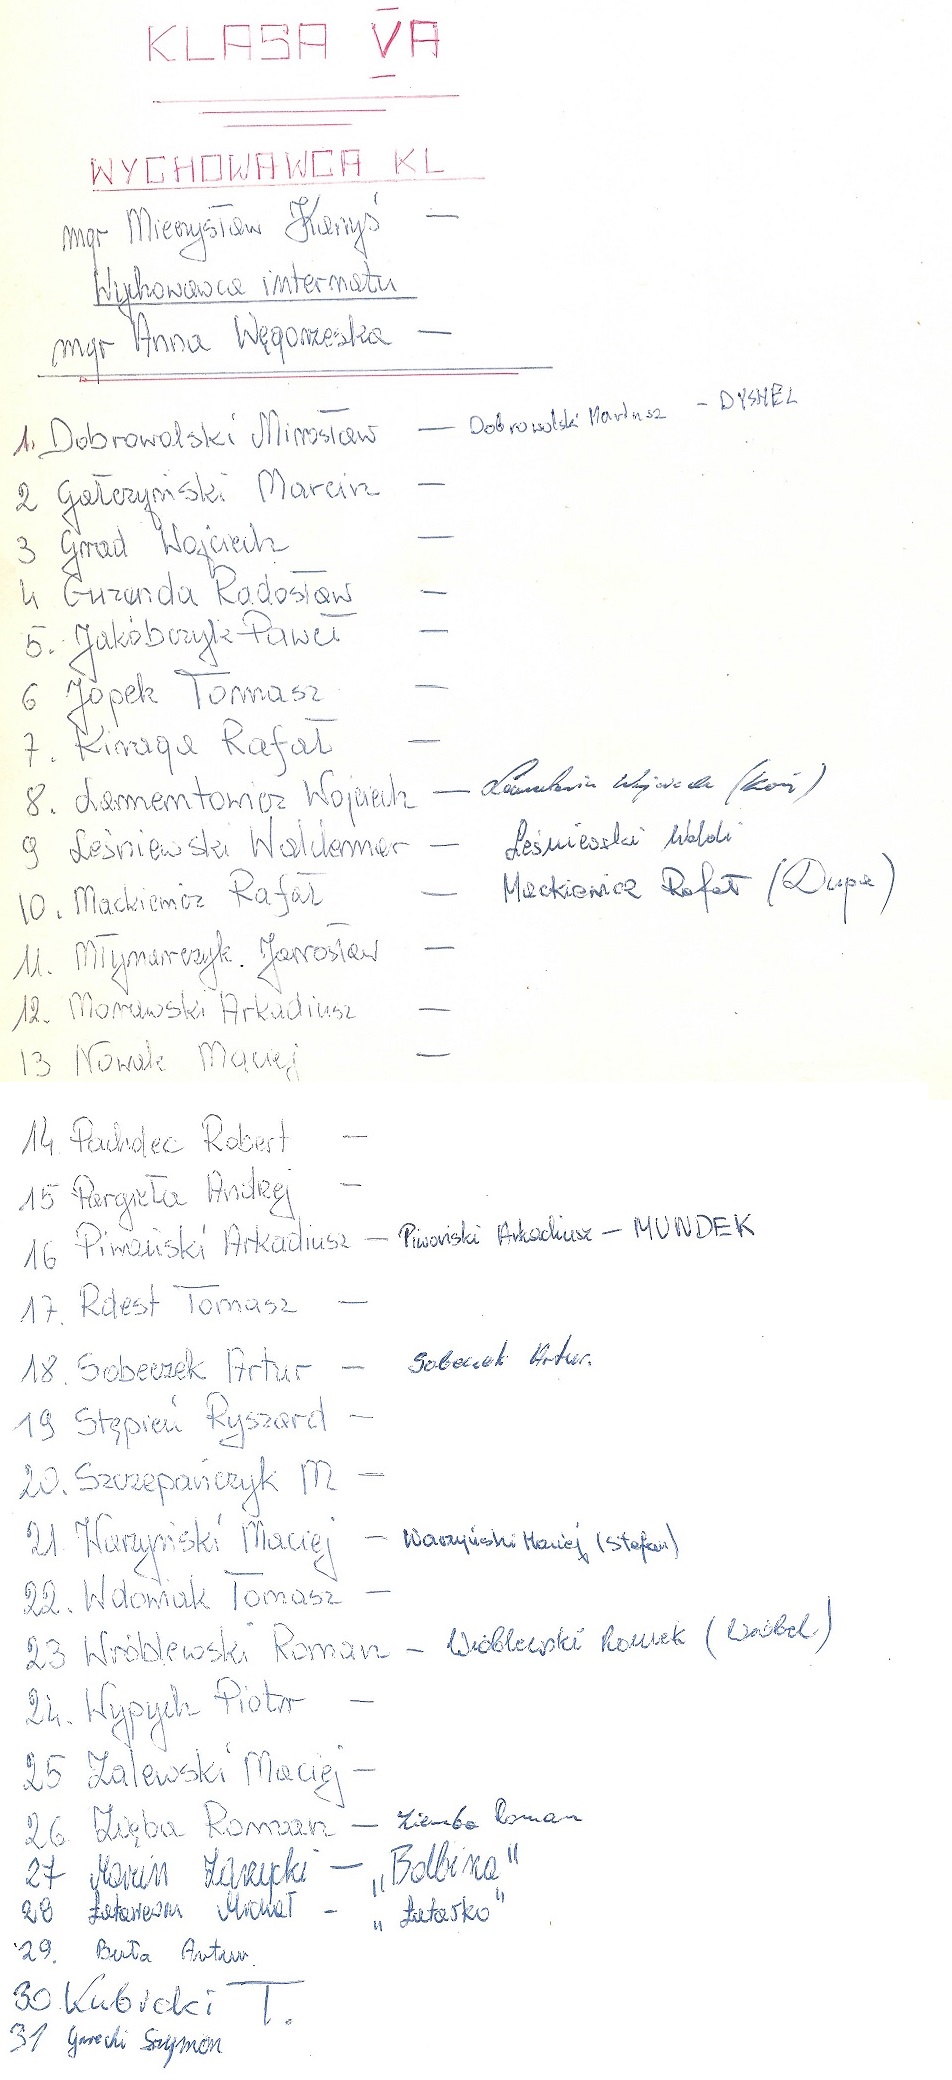 KLASA VA
WYCHOWAWCA KL
mgr Mieczysław Karyś —
Wychowawca internatu
mgr Anna Węgorzeska —
1. Dobrowolski Mirosław — Dobrowolski Mariusz - DYSHEL
2 Gałczyński Marcin —
3 Grad Wojciech —
4 Gurenda Radosław —
5. Jakóbczyk Paweł —
6 Jopek Tomasz —
7. Kiraga Rafał —
8. Lamentowicz Wojciech — Wojciech (Koń)
9 Leśniewski Waldemar — Leśniewski Waldi
10. Mackiewicz Rafał — Mackiewicz Rafał (Dupa)
11. Młynarczyk Jarosław —
12. Morawski Arkadiusz —
13 Nowak Maciej —
14 Pachdec Robert —
15 Pergieła Andrzej —
16 Piwoński Arkadiusz — Piwoński Arkadiusz — MUNDEK
17. Rdest Tomasz —
18. Sobeczek Artur — Sobeczek Artur.
19 Stępień Ryszard —
20. Szczepańczyk M —
21 Warzyński Maciej — Warzyński Maciej (Stefan)
22. Wdowiak Tomasz —
23 Wróblewski Roman — Wróblewski Romek (Wróbel)
24. Wypych Piotr —
25 Zalewski Maciej —
26 Zięba Roman — Ziemba Roman
27 Marcin Zarzycki — „Balbina"
28 Michał - „Żutaśko"
29. Buła Artur.
30 Kubicki T.
31 Górecki Szymon